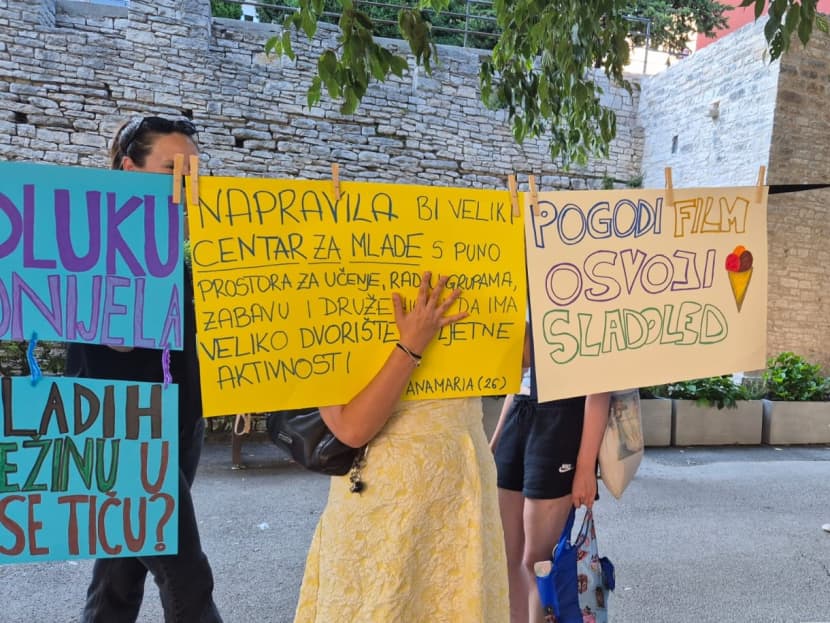 DLUKU
ONIJELA
LADIH
EŽINU U
SE TIČU?
NAPRAVILA BI VELIKI
CENTAR ZA MLADE S PUNO
PROSTORA ZA UČENJE, RAD GRUPAMA,
ZABAVU I DRUŽE DA IMA
VELIKO DVORIŠTE LJETNE
AKTIVNOSTI
ANAMARIA (26)
POGODI FILM
OSVOJI
SLADOLED